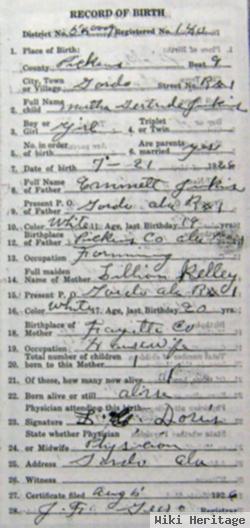 RECORD OF BIRTH
District No. Registered No.
1. Place of Birth:
County Pickens Beat 9
City, Town
or Village Gordo Street No. R#1
Full Name
2. child Gertrude
Boy or Girl Triplet
3. Girl 4. or Twin
No. in order Are parents
5. of birth 6. married yes
7. Date of birth 7-21 1926
Full Name
8. of Father Emmett
Present P. O.
9. of Father Gordo Ala R#1
10. Color White 11. Age, last Birthday 19 yrs.
Birthplace
12. of Father Pickens Co ala
13. Occupation Farming
Full maiden
14. Name of Mother Lillian Kelley
15. Present P. O. Gordo Ala R#1
16. Color White 17. Age, last Birthday 20 yrs.
Birthplace of
18. Mother Fayette Co
19. Occupation Housewife
Total number of children
20. born to this Mother 1
21. Of these, how many now alive 1
22. Born alive or still alive
Physician attending this birth
23. Signature Davis
State whether Physician
24. or Midwife Physician
25. Address Gordo Ala
26. Witness
27. Certificate filed Aug 6 1926
28. Registrar
Wiki Heritage